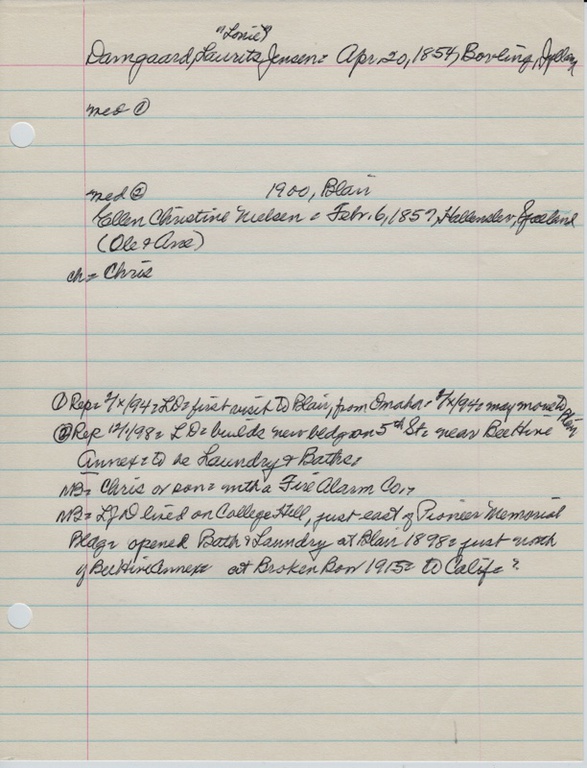 "Lonie"
Damgaard, Laurits Jensen = Apr. 20, 1854, Bovling, Jylland
med ①
med ② 1900, Blair
Ellen Christine Nielsen = Febr. 6, 1857, Sjælland
(Ole & Ane)
ch = Chris
① Rep = /94 = LD = first visit to Blair, from Omaha = /94 = may move to Blair
② Rep 12/1/98 = L D = builds new bldg on 5th St = near Bee Hive
Annex = to be Laundry & Baths =
NB = Chris or son = with a Fire Alarm Co.,
NB = LJD lived on College Hill, just east of Pioneer Memorial
Bldg = opened Bath & Laundry at Blair 1898 = just north
of Bee Hive Annex = at Broken Bow 1915 = to Calif = ?